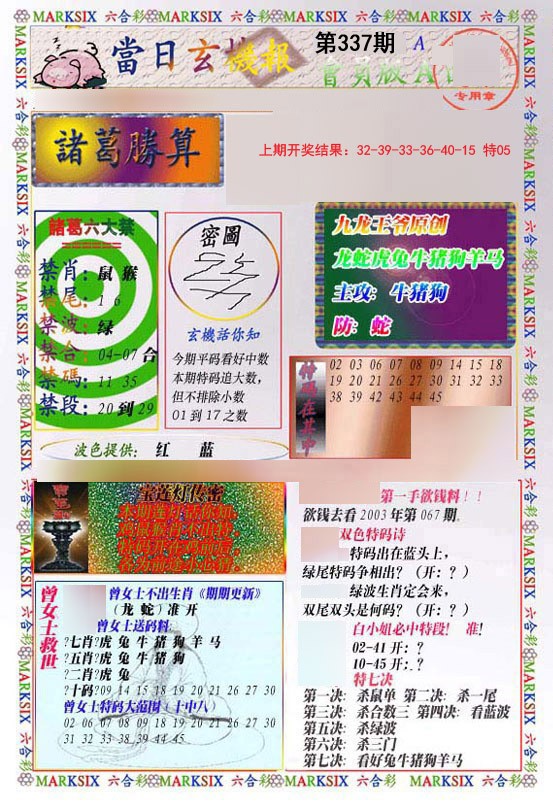 MARKSIX 六合彩 MARKSIX 六合彩 MARKSIX 六合彩 MARKSIX 六合彩 MARKSIX
當日玄機報
第337期
A
會員版A
专用章
諸葛勝算
上期开奖结果：32-39-33-36-40-15 特05
諸葛六大禁
禁肖：鼠 猴
禁尾：1 6
禁波：绿
禁合：04-07 合
禁碼：11 35
禁段：20到29
密圖
玄機話你知
今期平码看好中数
本期特码追大数，
但不排除小数
01到17之数
九龙王爷原创
龙蛇虎兔牛猪狗羊马
主攻：牛猪狗
防：蛇
特码在其中
02 03 06 07 08 09 14 15 18
19 20 21 26 27 30 31 32 33
38 39 42 43 44 45
波色提供： 红 蓝
宝莲灯传密
曾女士救世
曾女士不出生肖《期期更新》
（龙 蛇）准开
曾女士送码料
?七肖?虎 兔 牛 猪 狗 羊 马
?五肖?虎 兔 牛 猪 狗
?二肖?虎 兔
?十码?09 14 15 18 19 20 21 26 27 30
曾女士特码大范围（十中八）
02 06 07 08 09 18 19 20 21 26 27 30
31 32 33 38 39 44 45
第一手欲钱料！！
欲钱去看2003年第067期.
双色特码诗
特码出在蓝头上，
绿尾特码争相出？（开：？）
绿波生肖定会来，
双尾双头是何码？（开：？）
白小姐必中特段！ 准！
02-41 开：？
10-45 开：？
特七决
第一决：杀鼠单 第二决：杀一尾
第三决：杀合数三 第四决：看蓝波
第五决：杀绿波
第六决：杀三门
第七决：看好兔牛猪狗羊马
MARKSIX 六合彩 MARKSIX 六合彩 MARKSIX 六合彩 MARKSIX 六合彩 MARKSIX